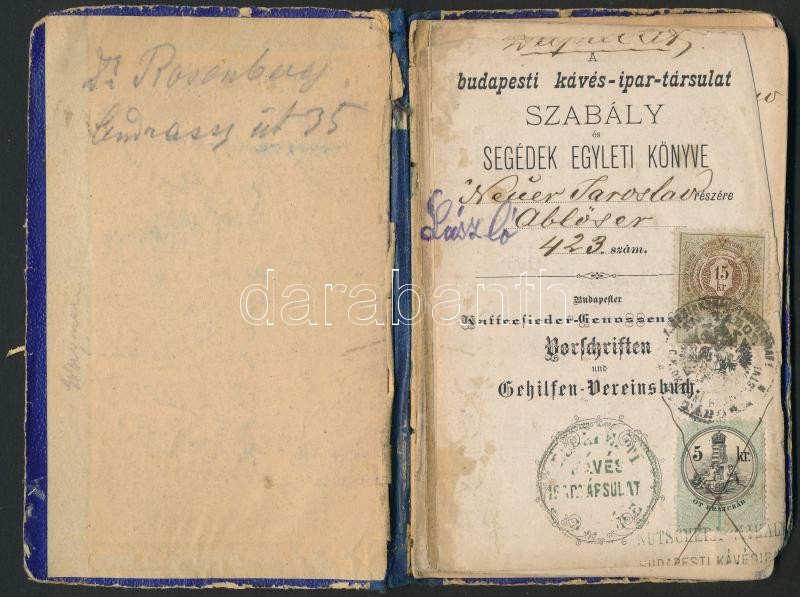 Dr Rosenberg
Andrassy út 35
A
budapesti kávés-ipar-társulat
SZABÁLY
és
SEGÉDEK EGYLETI KÖNYVE
Neuer Jaroslav részére
László
Ablöser
423. szám.
15
kr
Budapester
Kaffeesieder-Genossens
Vorschriften
und
Gehilfen-Vereinsbuch.
TÁBOR
BUDAPESTI
KÁVÉS
IPARTÁRSULAT
5 kr.
ÖT KRAJCZÁR
BUDAPESTI KÁVÉSIPAR
darabanth